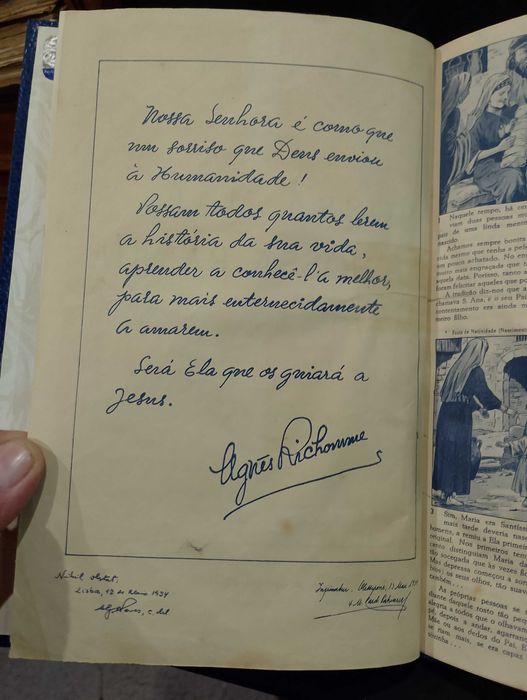 Nossa Senhora é como que
um sorriso que Deus enviou
à Humanidade!
Possam todos quantos lerem
a história da sua vida,
aprender a conhecê-l'a melhor,
para mais enternecidamente
a amarem.
Será Ela que os guiará a
Jesus.
Agnès Richomme
Nihil obstat.
Lisboa, 12 de Maio 1954
Imprimatur.
Naquele tempo, há
viam duas pessoas
de uma linda
nascido.
Achamos sempre bonita
ainda mesmo que tenha a
um pouco achatado. No
muito mais engraçada que
aquela data. Porisso,
foram felicitar aqueles que
A tradição diz-nos que
chamava S. Ana, é o seu
contentamento era ainda
meiro filho.
Festa da Natividade
3 Sim, Maria era
mais tarde deveria
homens, a remiu a Ela
original. Nos primeiros
canto distinguiam Maria
tão socegada que às vezes
Mas depressa começou a
los; os seus olhos, tão
também...
As próprias pessoas se
diante daquele rosto tão
alegria a todos que o
pé, depois a andar,
Mãe ou aos dedos do Pai. E
se riam mais, se era capaz
sozinha...